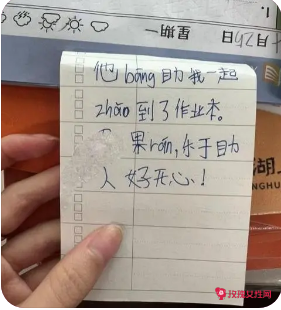 星期一
月 日
他bāng助我一起
zhǎo到了作业本。
果rán,乐于助
人好开心!
湖
NGHU
玫瑰女性网